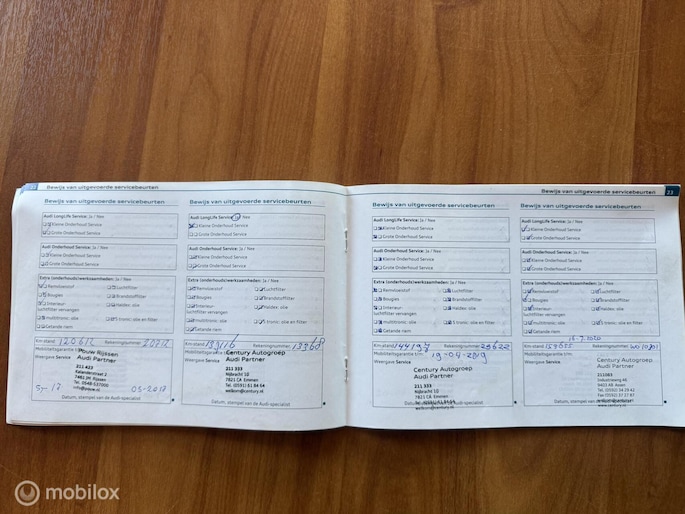 Bewijs van uitgevoerde servicebeurten
Bewijs van uitgevoerde servicebeurten
Audi LongLife Service: Ja / Nee
Kleine Onderhoud Service
Grote Onderhoud Service
Audi Onderhoud Service:
Kleine Onderhoud Service
Grote Onderhoud Service
Extra (onderhouds)werkzaamheden: Ja / Nee
Remvloeistof
Luchtfilter
Bougies
Brandstoffilter
Interieur-
luchtfilter vervangen
Haldex: olie
multitronic: olie
S tronic: olie en filter
Getande riem
Km-stand 120612 Rekeningnummer
Mobiliteitsgarantie t/m:
Weergave Service
Pouw Rijssen
Audi Partner
211 423
Kalanderstraat 2
7461 JM Rijssen
Tel. 0548-537000
05-2018
Datum, stempel van de Audi-specialist
Bewijs van uitgevoerde servicebeurten
Audi LongLife Service: Ja / Nee
Kleine Onderhoud Service
Grote Onderhoud Service
Audi Onderhoud Service:
Kleine Onderhoud Service
Grote Onderhoud Service
Extra (onderhouds)werkzaamheden: Ja / Nee
Remvloeistof
Luchtfilter
Bougies
Brandstoffilter
Interieur-
luchtfilter vervangen
Haldex: olie
multitronic: olie
S tronic: olie en filter
Getande riem
Km-stand Rekeningnummer
Mobiliteitsgarantie
Weergave Service
Century Autogroep
Audi Partner
211 333
Nijbracht 10
7821 CA Emmen
Tel. (0591) 61 84 64
welkom@century.nl
Datum, stempel van de Audi-specialist
Bewijs van uitgevoerde servicebeurten
23
Bewijs van uitgevoerde servicebeurten
Audi LongLife Service: Ja / Nee
Kleine Onderhoud Service
Grote Onderhoud Service
Audi Onderhoud Service:
Kleine Onderhoud Service
Grote Onderhoud Service
Extra (onderhouds)werkzaamheden: Ja / Nee
Remvloeistof
Luchtfilter
Bougies
Brandstoffilter
Interieur-
luchtfilter vervangen
Haldex: olie
multitronic: olie
S tronic: olie en filter
Getande riem
Km-stand 144197 Rekeningnummer
Mobiliteitsgarantie t/m: 19-04-2019
Weergave Service
Century Autogroep
Audi Partner
211 333
Nijbracht 10
7821 CA Emmen
welkom@century.nl
Datum, stempel van de Audi-specialist
Bewijs van uitgevoerde servicebeurten
Audi LongLife Service: Ja / Nee
Kleine Onderhoud Service
Grote Onderhoud Service
Audi Onderhoud Service:
Kleine Onderhoud Service
Grote Onderhoud Service
Extra (onderhouds)werkzaamheden: Ja / Nee
Remvloeistof
Luchtfilter
Bougies
Brandstoffilter
Interieur-
luchtfilter vervangen
Haldex: olie
multitronic: olie
S tronic: olie en filter
Getande riem
Km-stand Rekeningnummer
Mobiliteitsgarantie t/m:
Weergave Service
Century Autogroep
Audi Partner
211083
9403 AB Assen
www.century.nl
Datum, stempel van de Audi-specialist
mobilox